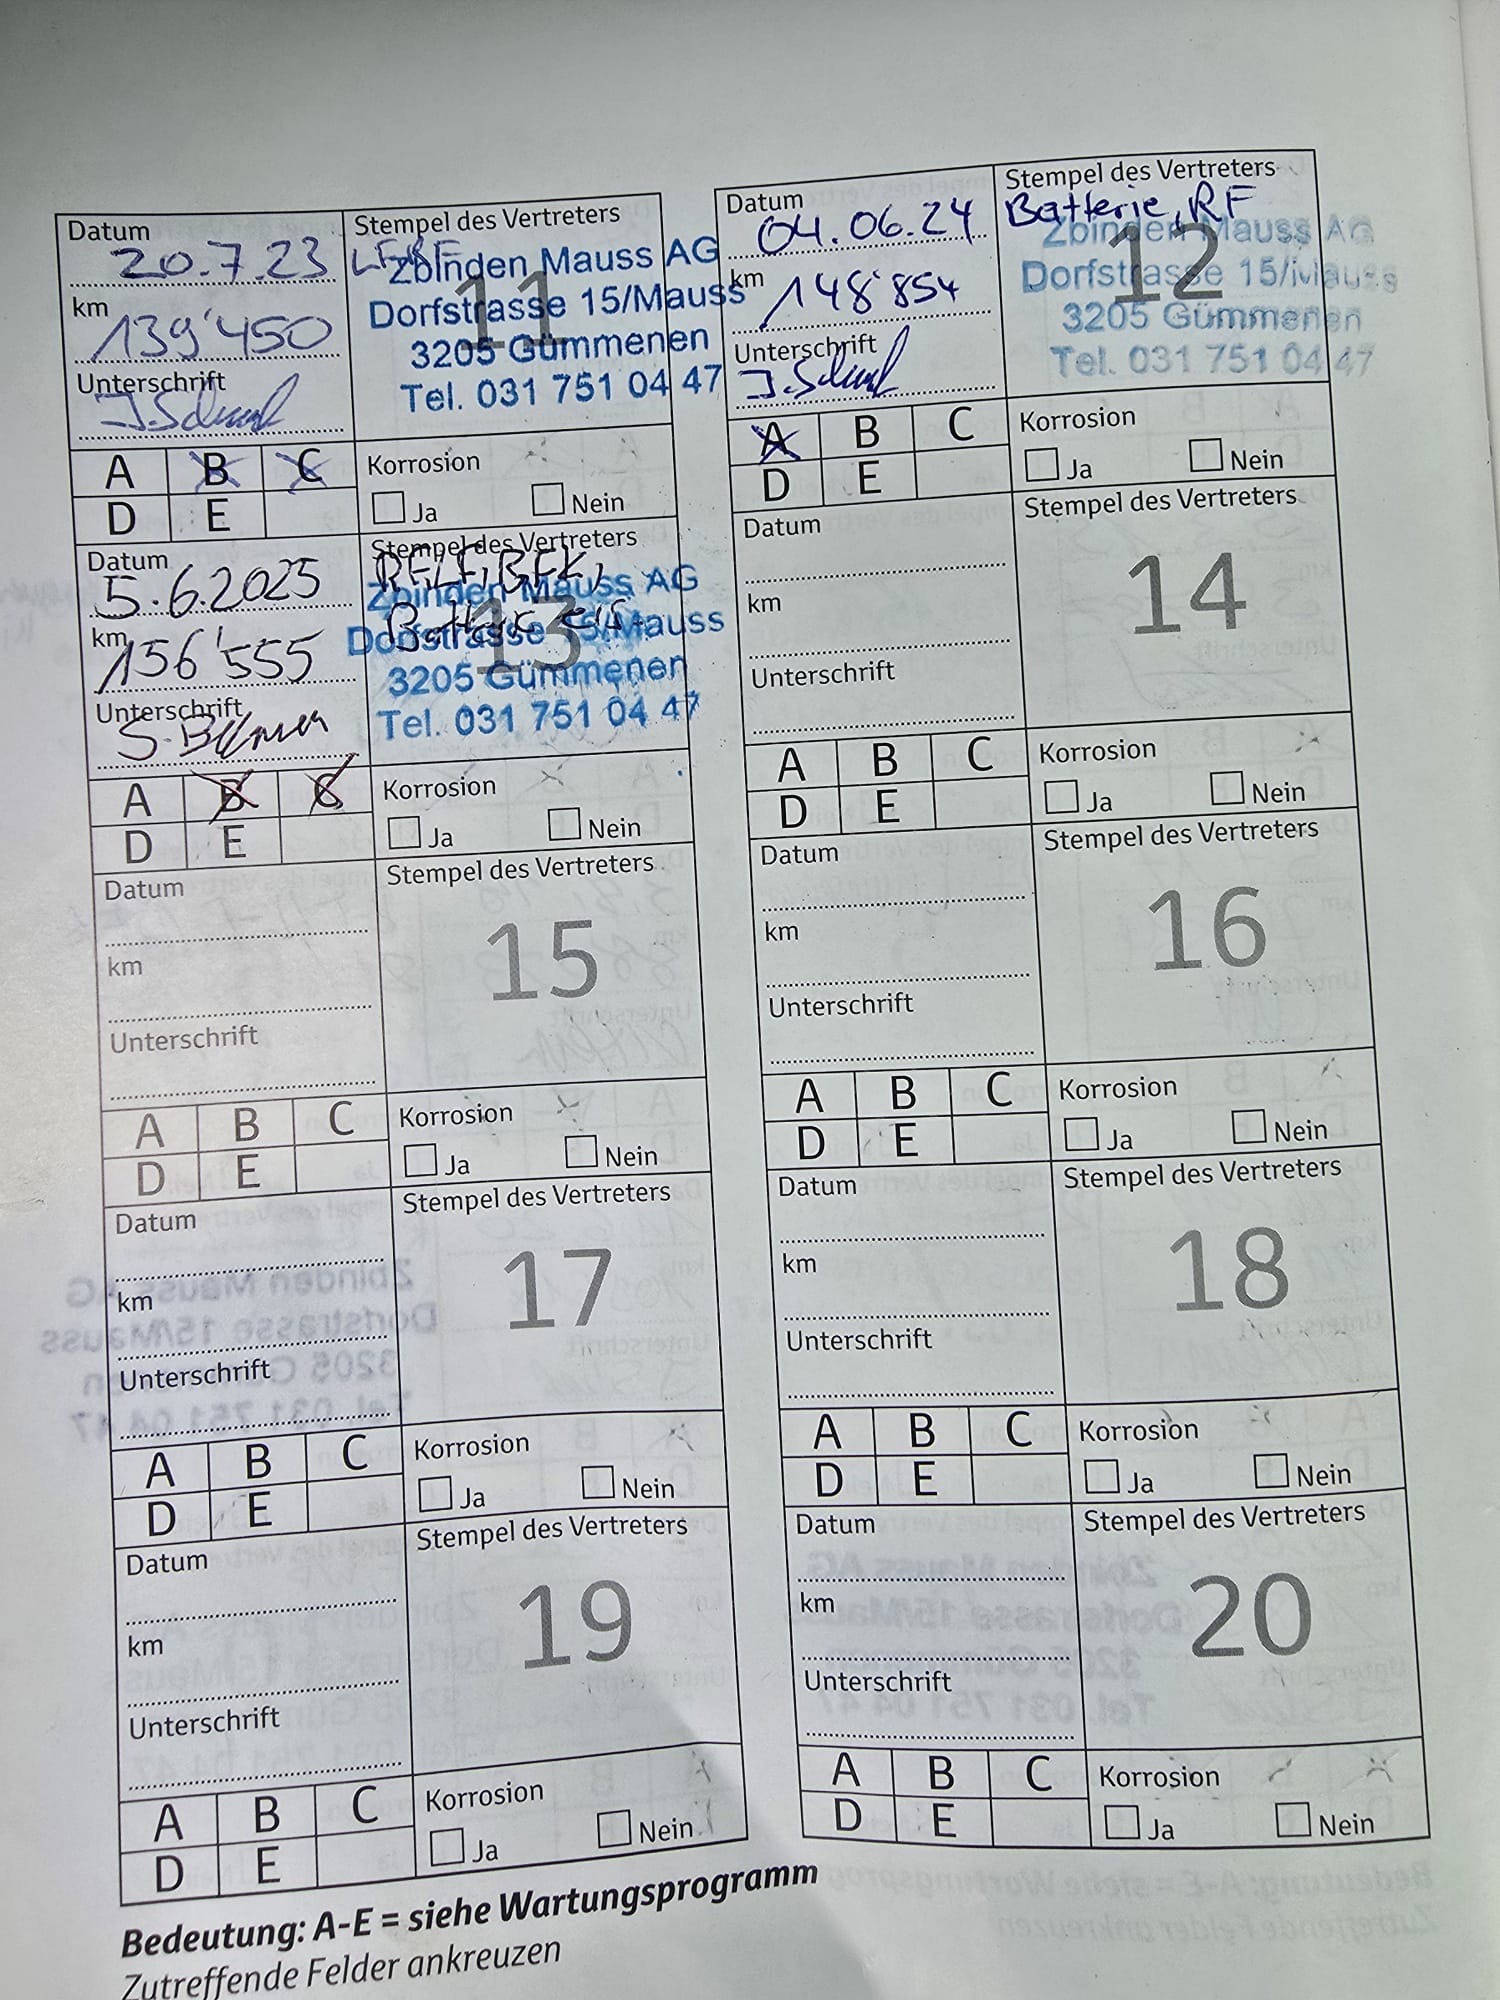 Datum 20.7.23
Stempel des Vertreters
11
Zbinden Mauss AG
Dorfstrasse 15/Mauss
3205 Gümmenen
Tel. 031 751 04 47
km 139'450
Unterschrift
A B C
D E
Korrosion
Ja Nein
Datum 04.06.24
Stempel des Vertreters
Batterie, RF
12
Zbinden Mauss AG
Dorfstrasse 15/Mauss
3205 Gümmenen
Tel. 031 751 04 47
km 148'854
Unterschrift
A B C
D E
Korrosion
Ja Nein
Datum 5.6.2025
Stempel des Vertreters
13
Zbinden Mauss AG
Dorfstrasse 15/Mauss
3205 Gümmenen
Tel. 031 751 04 47
km 156'555
Unterschrift
A B C
D E
Korrosion
Ja Nein
Datum
Stempel des Vertreters
14
km
Unterschrift
A B C
D E
Korrosion
Ja Nein
Datum
Stempel des Vertreters
15
km
Unterschrift
A B C
D E
Korrosion
Ja Nein
Datum
Stempel des Vertreters
16
km
Unterschrift
A B C
D E
Korrosion
Ja Nein
Datum
Stempel des Vertreters
17
km
Unterschrift
A B C
D E
Korrosion
Ja Nein
Datum
Stempel des Vertreters
18
km
Unterschrift
A B C
D E
Korrosion
Ja Nein
Datum
Stempel des Vertreters
19
km
Unterschrift
A B C
D E
Korrosion
Ja Nein
Datum
Stempel des Vertreters
20
km
Unterschrift
A B C
D E
Korrosion
Ja Nein
Bedeutung: A-E = siehe Wartungsprogramm
Zutreffende Felder ankreuzen